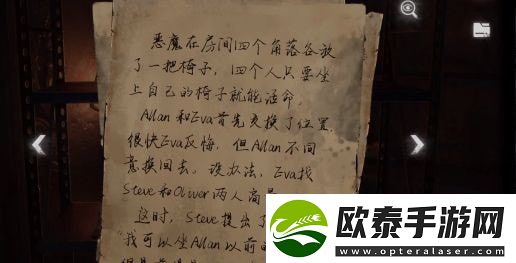 恶魔在房间四个角落各放
了一把椅子,四个人只要坐
上自己的椅子就能活命。
Allan和Eva首先交换了位置,
很快Eva反悔,但Allan不同
意换回去。没办法,Eva找
Steve和Oliver两人商量
这时,Steve提出了
"我可以坐Allan以前
欧泰手游网
www.opteralaser.com